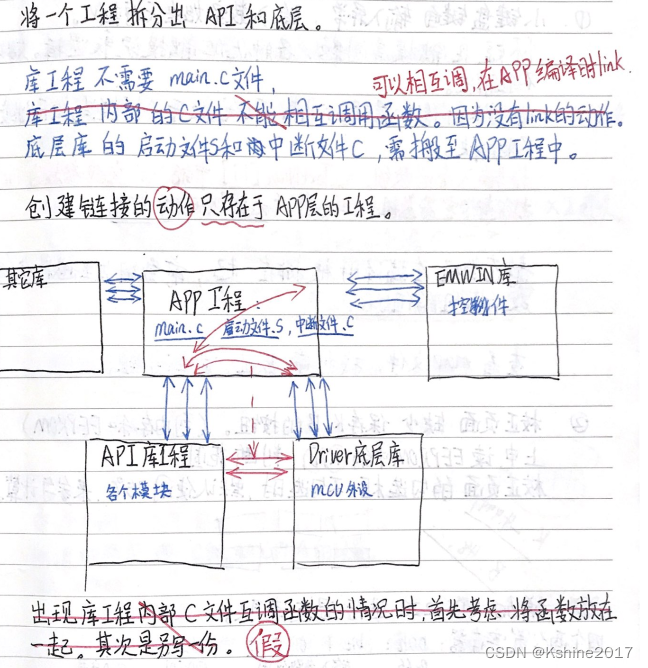 将一个工程拆分出 API 和底层。
库工程 不需要 main.c文件,
可以相互调,在APP编译时link.
库工程 内部的C文件 不能相互调用函数。因为没有link的动作。
底层库 的 启动文件S和中断文件C,需搬至APP工程中。
创建链接的动作只存在于 APP层的工程。
其它库
APP工程:
main.c 启动文件.S, 中断文件.C
EMWIN库
控制件
API库工程
各个模块
Driver底层库
MCU外设
出现库工程内部C文件互调函数的情况时,首先考虑 将函数放在
一起。其次是另写一份。 假
CSDN @Kshine2017